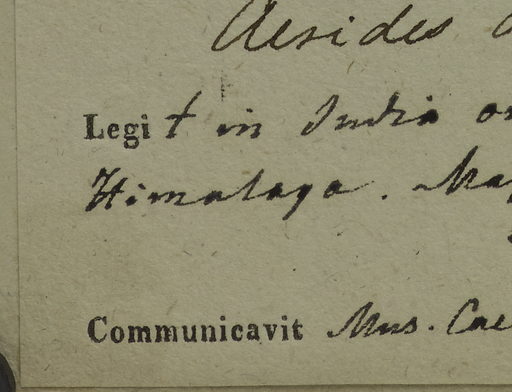 Aesides
Legit in India
Himalaya. Maj
Communicavit Mus. Cae